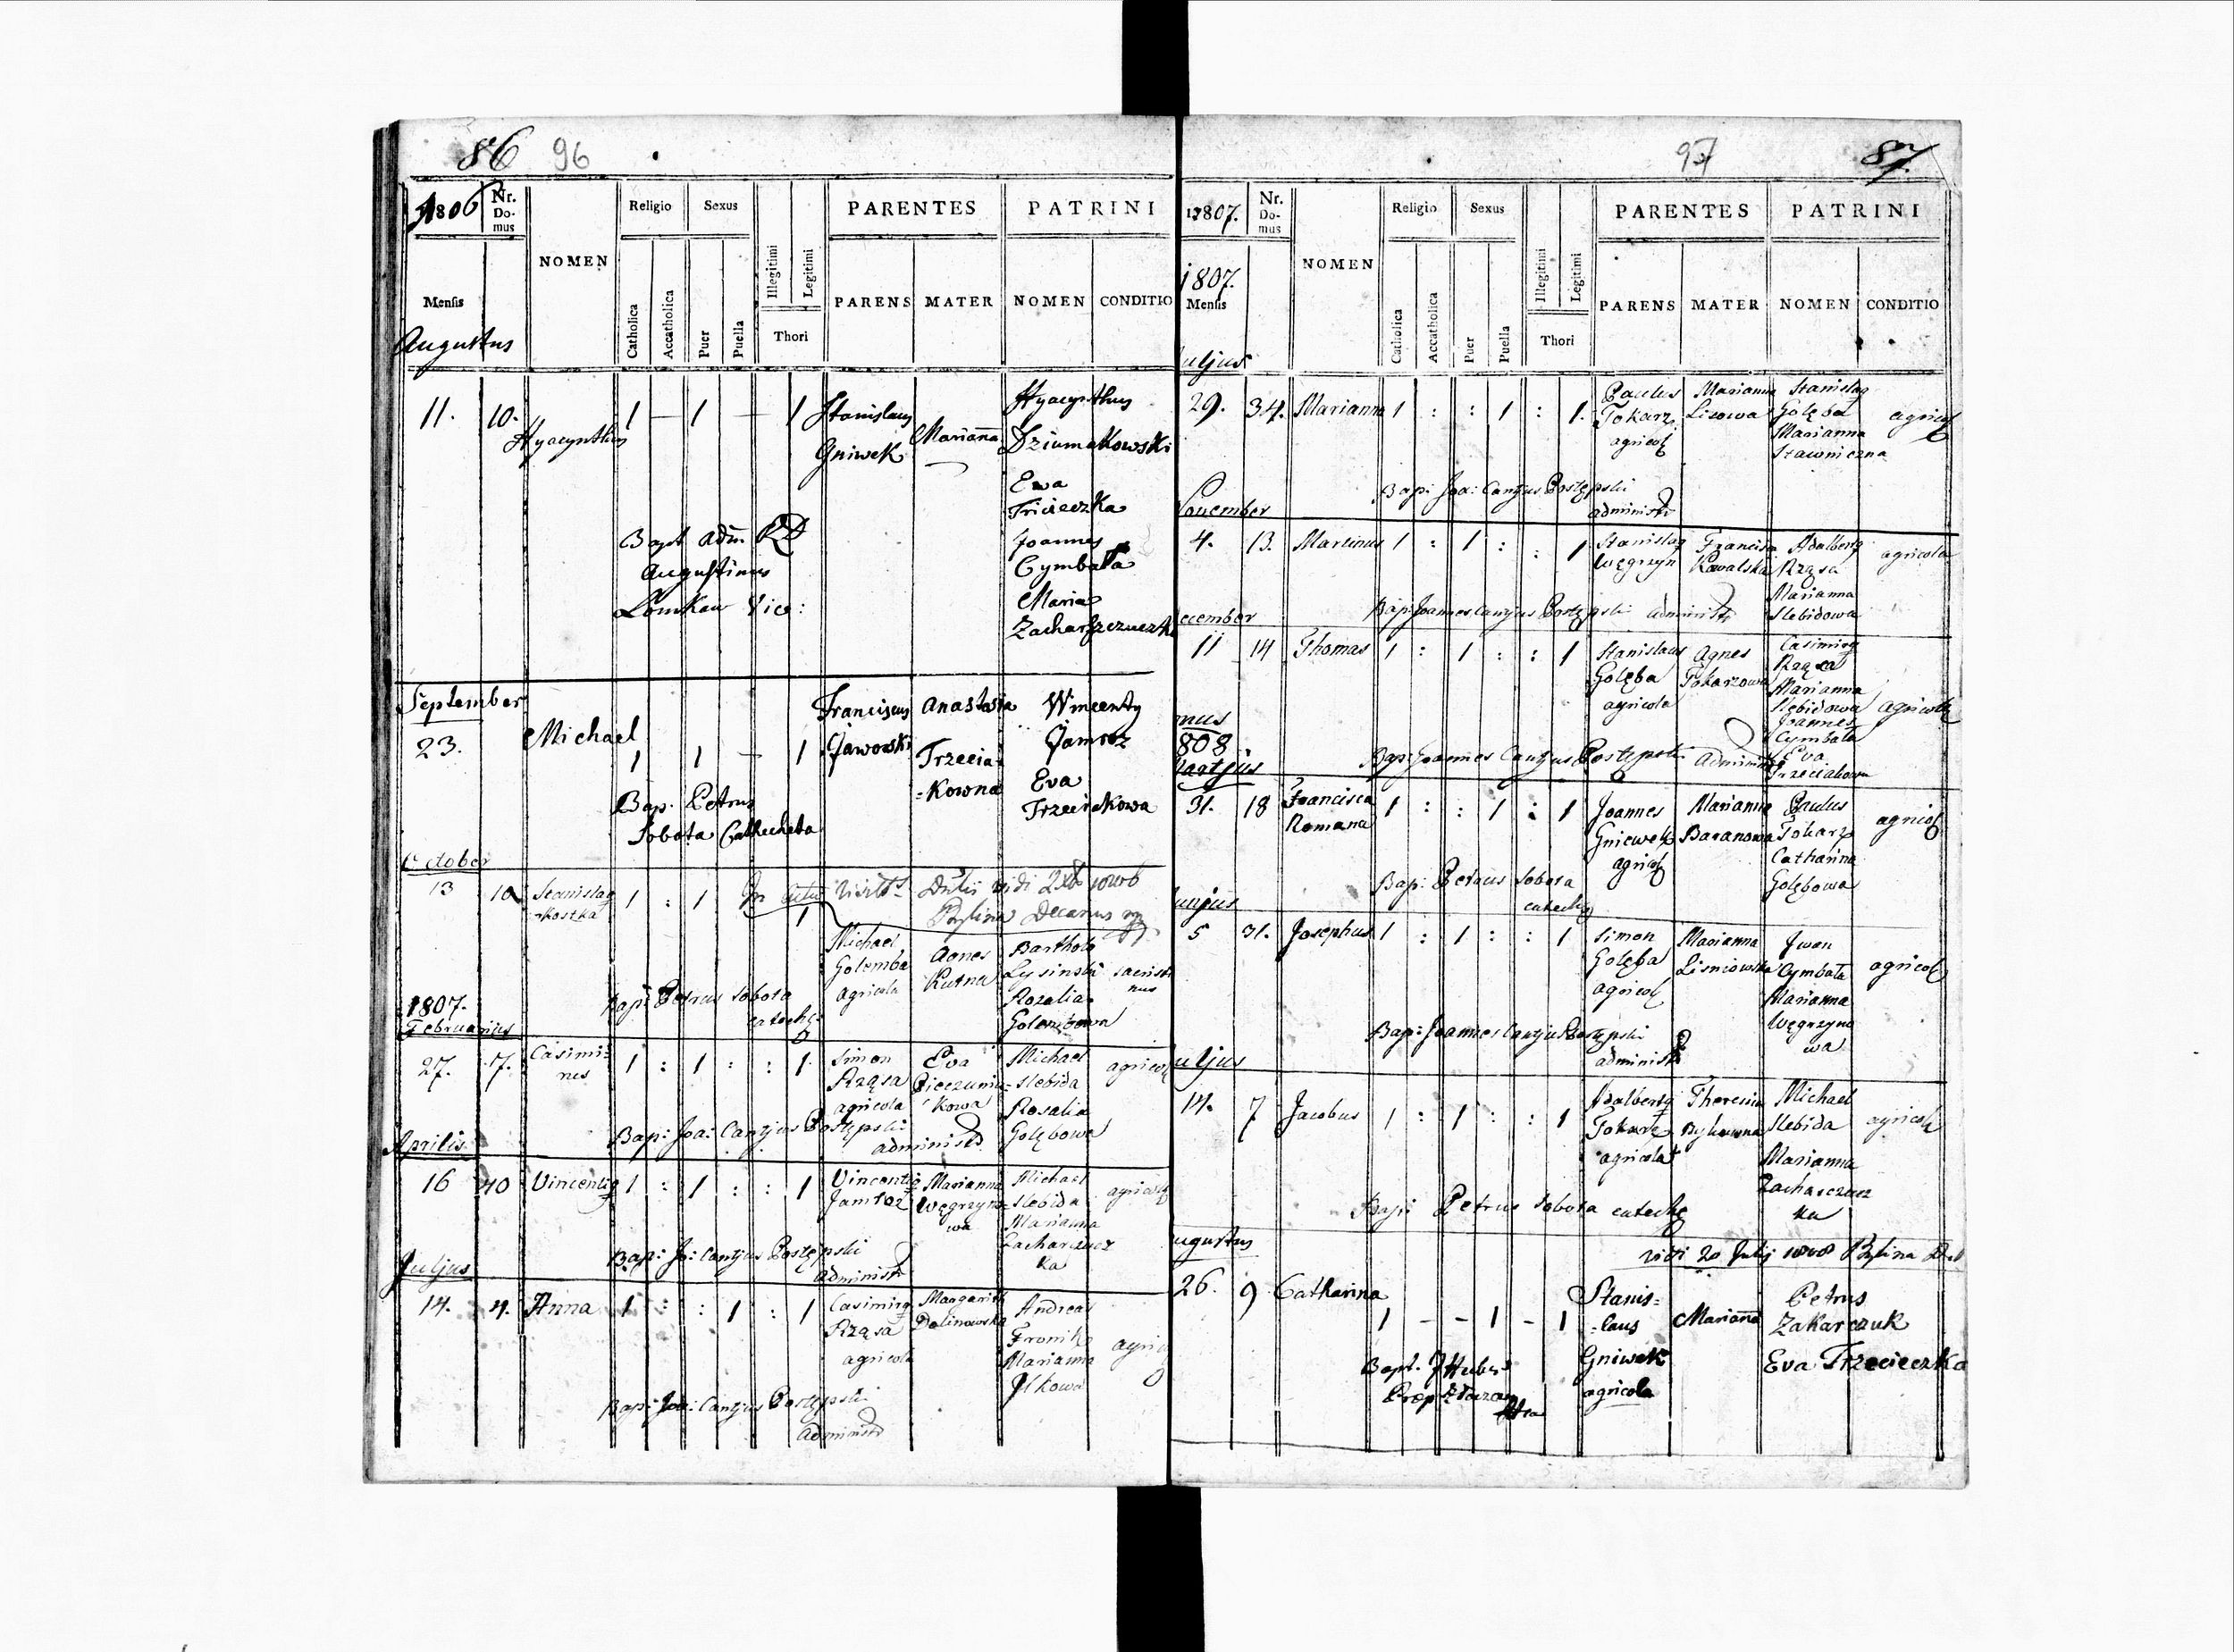 86 96
1806 Nr. Domus NOMEN Religio Sexus PARENTES PATRINI
Mensis Catholica Accatholica Puer Puella Illegitimi Legitimi Thori PARENS MATER NOMEN CONDITIO
Augustus
11. 10. Hyacynthus 1 — 1 — 1 Stanislaus Gniwek Marianna Hyacynthus Dziumakowski
Ewa
Joannes
Cymbała
Maria
Bapt Adm RD
Augustinus
September
23. Michael 1 1 — 1 Franciscus Jaworski Anastasia Trzecia=
=kowna Wincenty Jamroz
Eva
Trzeciakowa
Bap. Petrus
Sobota Cathecheta
October
13 10 Stanislaq
-kostka 1 : 1 1
Decanus
Michael
Golemba
agricola
Agnes
Kutna
Bartholo
Lysinski
Rozalia
Golembowa
Bap: Petrus Sobota
cateche:
1807.
Februarius
27. 17. Casimi=
rus 1 : 1 : : 1 Simon
Rząsa
agricola
Eva
Pieczunia=
kowa
Michael
Slebida
Rosalia
Golębowa
agricol
Bap: Joa: Cantjus Postępski
administr
Aprilis
16 40 Vincentiq 1 : 1 : : 1 Vincentiq
Jamroz
Marianna
Węgrzyno=
wa
Michael
Slebida
Marianna
Zacharczucz
ka
agricol
Bap: Jo: Cantjus Postępski
administr
Juljus
14. 4. Anna 1 : : 1 : 1 Casimirq
Rząsa
agricola
Margarith
Dolinowska
Andreas
Fronik
Marianna
Ilkowa
agric
Bap: Joa: Cantjus Postępski
administr
97 87.
1807. Nr. Domus NOMEN Religio Sexus PARENTES PATRINI
1807.
Mensis Catholica Accatholica Puer Puella Illegitimi Legitimi Thori PARENS MATER NOMEN CONDITIO
uljus
29. 34. Marianna 1 : : 1 : 1. Paulus
Tokarz
agricol
Marianna
Lisowa
Stanislaq
Golęba
Marianna
Stawniczna
agricol
Bap: Joa: Cantjus Postępski
administr
November
4. 13. Martinus 1 : 1 : : 1 Stanislaq
Węgrzyn
Francisca
Kowalska
Adalbertq
Rząsa
Marianna
Slebidowa
agricola
Bap: Joannes Cantjus Postępski administr
ecember
11 14 Thomas 1 : 1 : : 1 Stanislaus
Golęba
agricola
Agnes
Tokarzowna
Casimirq
Rząsa
Marianna
Slebidowa
Joannes
Cymbała
Eva
Trzeciakowa
agricol
Bap: Joannes Cantjus Postępski administr
nnus
808
Martjus
31. 18 Francisca
Romana 1 : : 1 : 1 Joannes
Gniewek
agricol
Marianna
Baranowa
Paulus
Tokarz
Catharina
Golębowa
agricol
Bap: Petrus Sobota
cateche
unjus
5 31. Josephus 1 : 1 : : 1 Simon
Golęba
agricol
Marianna
Lisniowska
Iwan
Cymbała
Marianna
Węgrzyno
wa
agricol
Bap: Joannes Cantjus Postępski
administr
uljus
14. 7 Jacobus 1 : 1 : : 1 Adalbertq
Tokarz
agricola
Theresia
Bykowna
Michael
Slebida
Marianna
Zacharczucz
ka
agricola
Bap: Petrus Sobota cateche
ugustus
vidi 20 Julij 1808
26. 9 Catharina 1 - - 1 - 1 Stanis=
=laus
Gniwek
agricola
Marianna
Petrus
Zakarczuk
Eva Trzecieczka